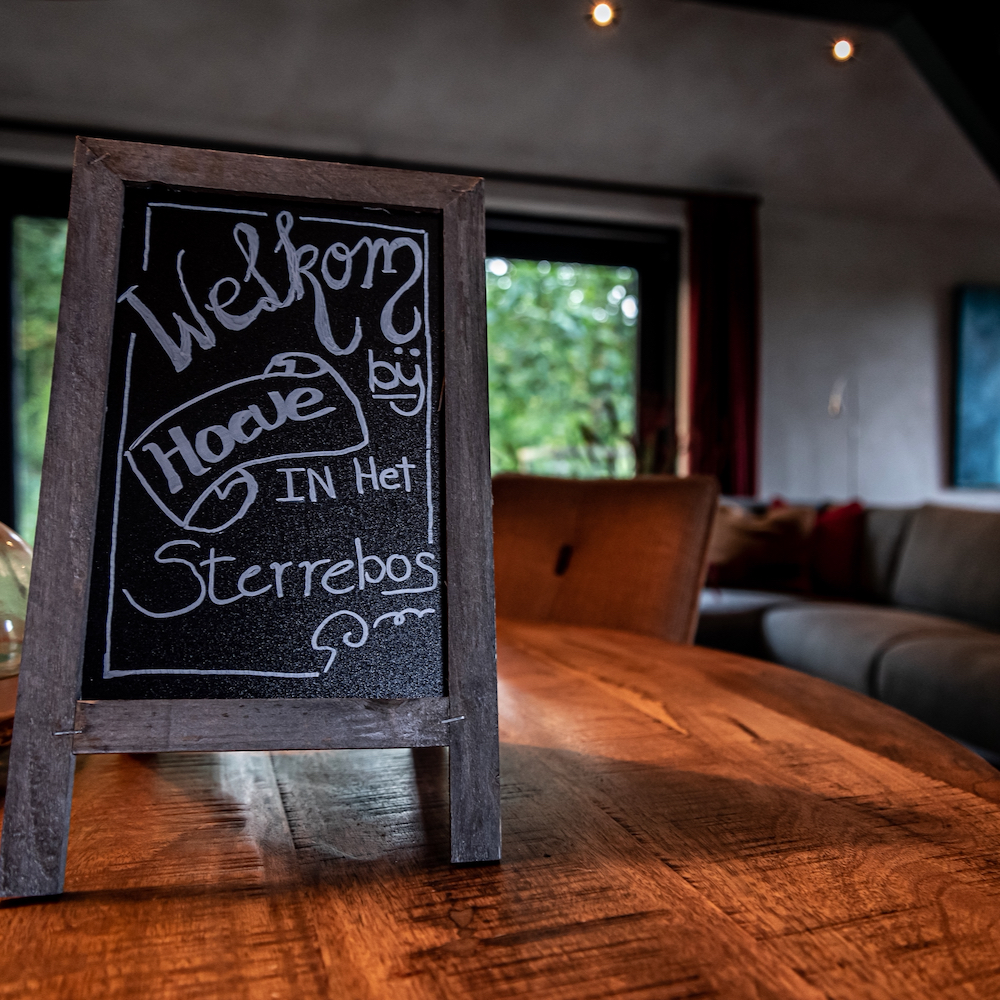 Welkom
bij
Hoeve
IN Het
Sterrebos